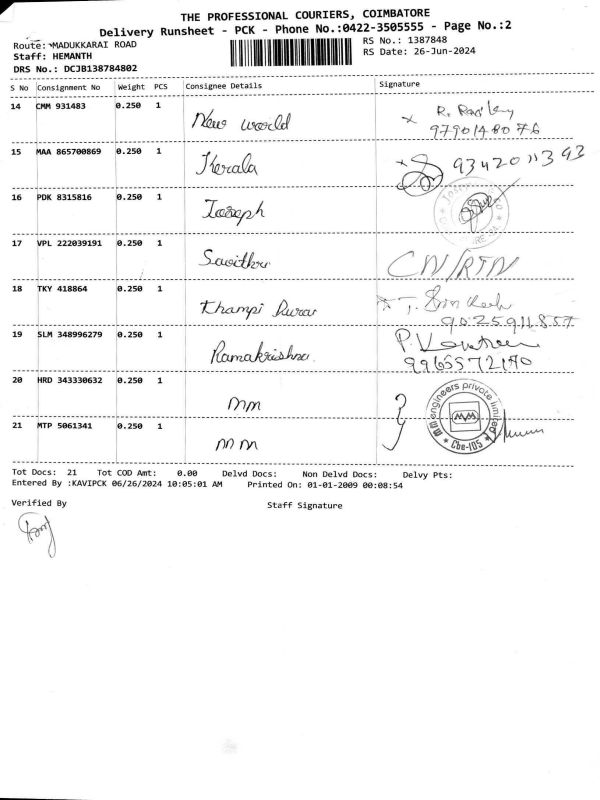 THE PROFESSIONAL COURIERS, COIMBATORE
Delivery Runsheet - PCK - Phone No.:0422-3505555 - Page No.:2
Route: MADUKKARAI ROAD
RS No.: 1387848
Staff: HEMANTH
RS Date: 26-Jun-2024
DRS No.: DCJB138784802
S No Consignment No Weight PCS Consignee Details Signature
14 CMM 931483 0.250 1 New world
9790148076
15 MAA 865700869 0.250 1 Kerala 9342011393
16 PDK 8315816 0.250 1 Joseph
17 VPL 222039191 0.250 1 Savithri CN/RTN
18 TKY 418864 0.250 1 Thampi Durai
9025911857
19 SLM 348996279 0.250 1 Ramakrishna
9965572170
20 HRD 343330632 0.250 1 mm
m m engineers private limited
Cbe-105
21 MTP 5061341 0.250 1 mm
Tot Docs: 21 Tot COD Amt: 0.00 Delvd Docs: Non Delvd Docs: Delvy Pts:
Entered By :KAVIPCK 06/26/2024 10:05:01 AM Printed On: 01-01-2009 00:08:54
Verified By
Staff Signature